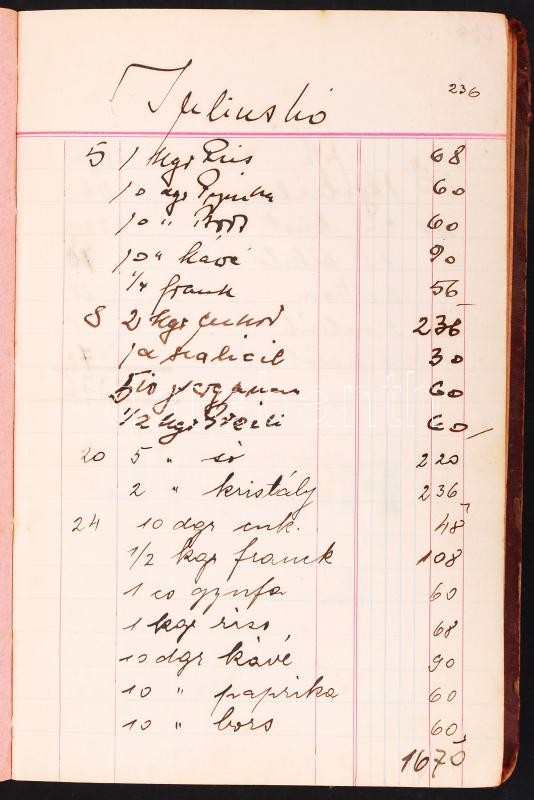 236
Julius hó
5 1 kgr Riis 68
10 dgr Paprika 60
10 " Bors 60
10 " kávé 90
1/4 frank 56
8 2 kgr cukor 236
1 a szalicil 30
60
1/2 kgr 60
20 5 " 220
2 " kristály 236
24 10 dgr cuk. 48
1/2 kgr franck 108
1 co gyufa 60
1 kgr riso 68
10 dgr kávé 90
10 " paprika 60
10 " bors 60
1670